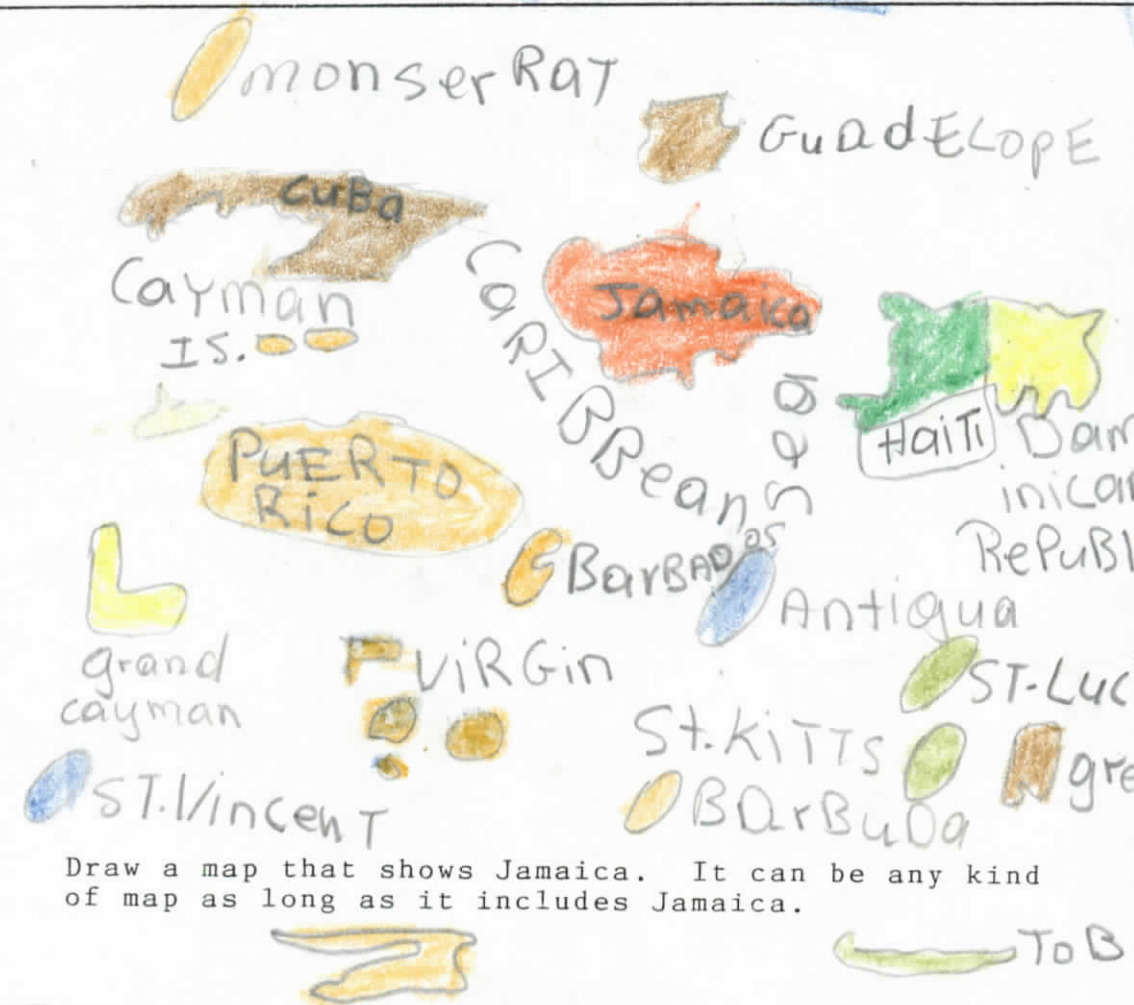 monserRaT
GuadELopE
CuBa
Cayman
IS.
CaRIBBean sea
Jamaica
HaiTi
Dam
inican
RePuBl
PuERTO
RiCO
BarBADos
Antiqua
grand
cayman
ViRGin
ST-Luc
St.KiTTS
gre
ST.VincenT
BarBuDa
Draw a map that shows Jamaica. It can be any kind
of map as long as it includes Jamaica.
ToB